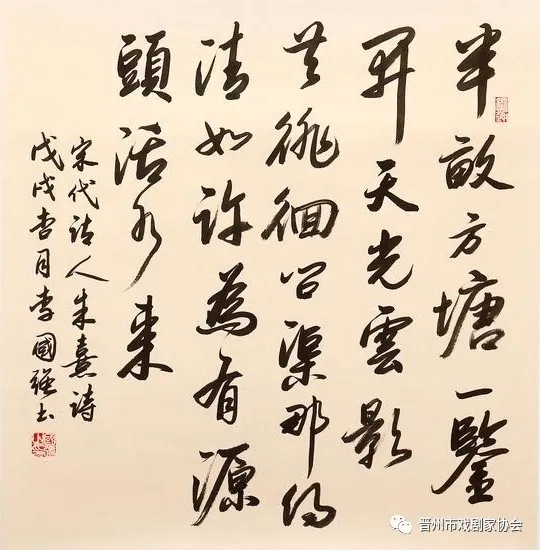 半畝方塘一鑒
開天光雲影
共徘徊問渠那得
清如許為有源
頭活水來
宋代詩人朱熹詩
戊戌杏月李國強书
晋州市戏剧家协会